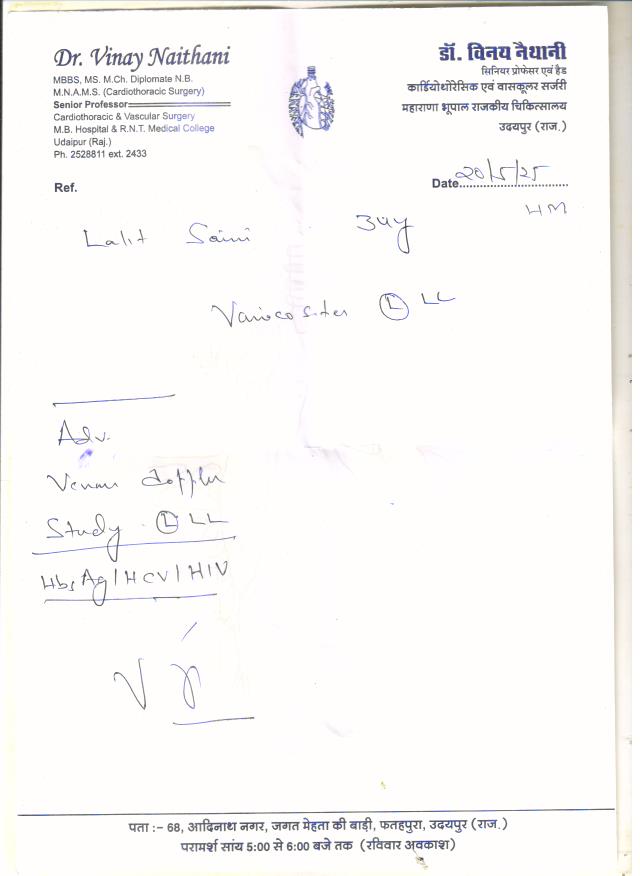 Dr. Vinay Naithani
MBBS, MS. M.Ch. Diplomate N.B.
M.N.A.M.S. (Cardiothoracic Surgery)
Senior Professor
Cardiothoracic & Vascular Surgery
M.B. Hospital & R.N.T. Medical College
Udaipur (Raj.)
Ph. 2528811 ext. 2433
डॉ. विनय नैथानी
सिनियर प्रोफेसर एवं हैड
कार्डियोथोरेसिक एवं वासकूलर सर्जरी
महाराणा भूपाल राजकीय चिकित्सालय
उदयपुर (राज.)
Ref.
Date 20/5/25
HM
Lalit Saini 34y
Varicosities (L) LL
Adv.
Venous doppler
Study (L) LL
HbsAg/HCV/HIV
पता :– 68, आदिनाथ नगर, जगत मेहता की बाड़ी, फतहपुरा, उदयपुर (राज.)
परामर्श सांय 5:00 से 6:00 बजे तक (रविवार अवकाश)